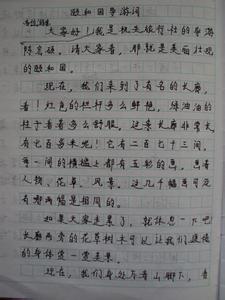 颐和园导游词
大家好！我是机灵旅行社的导游
陈启硕。请大家看，那就是美丽壮观
的颐和园。
现在，我们来到了有名的长廊，
看！红色的栏杆多么鲜艳，绿油油的
柱子看着多么舒服。这条长廊非常长，
有七百多米呢！它有二百七十三间，
每一间的横槛上都有五彩的画，画着
人物、花草、风景。这几千幅画可没
有哪两幅是相同的。
如果大家走累了，就休息一下吧！
长廊两旁的花草树木可以让我们疲倦
的身体
现在，我们身处万寿山脚下，看